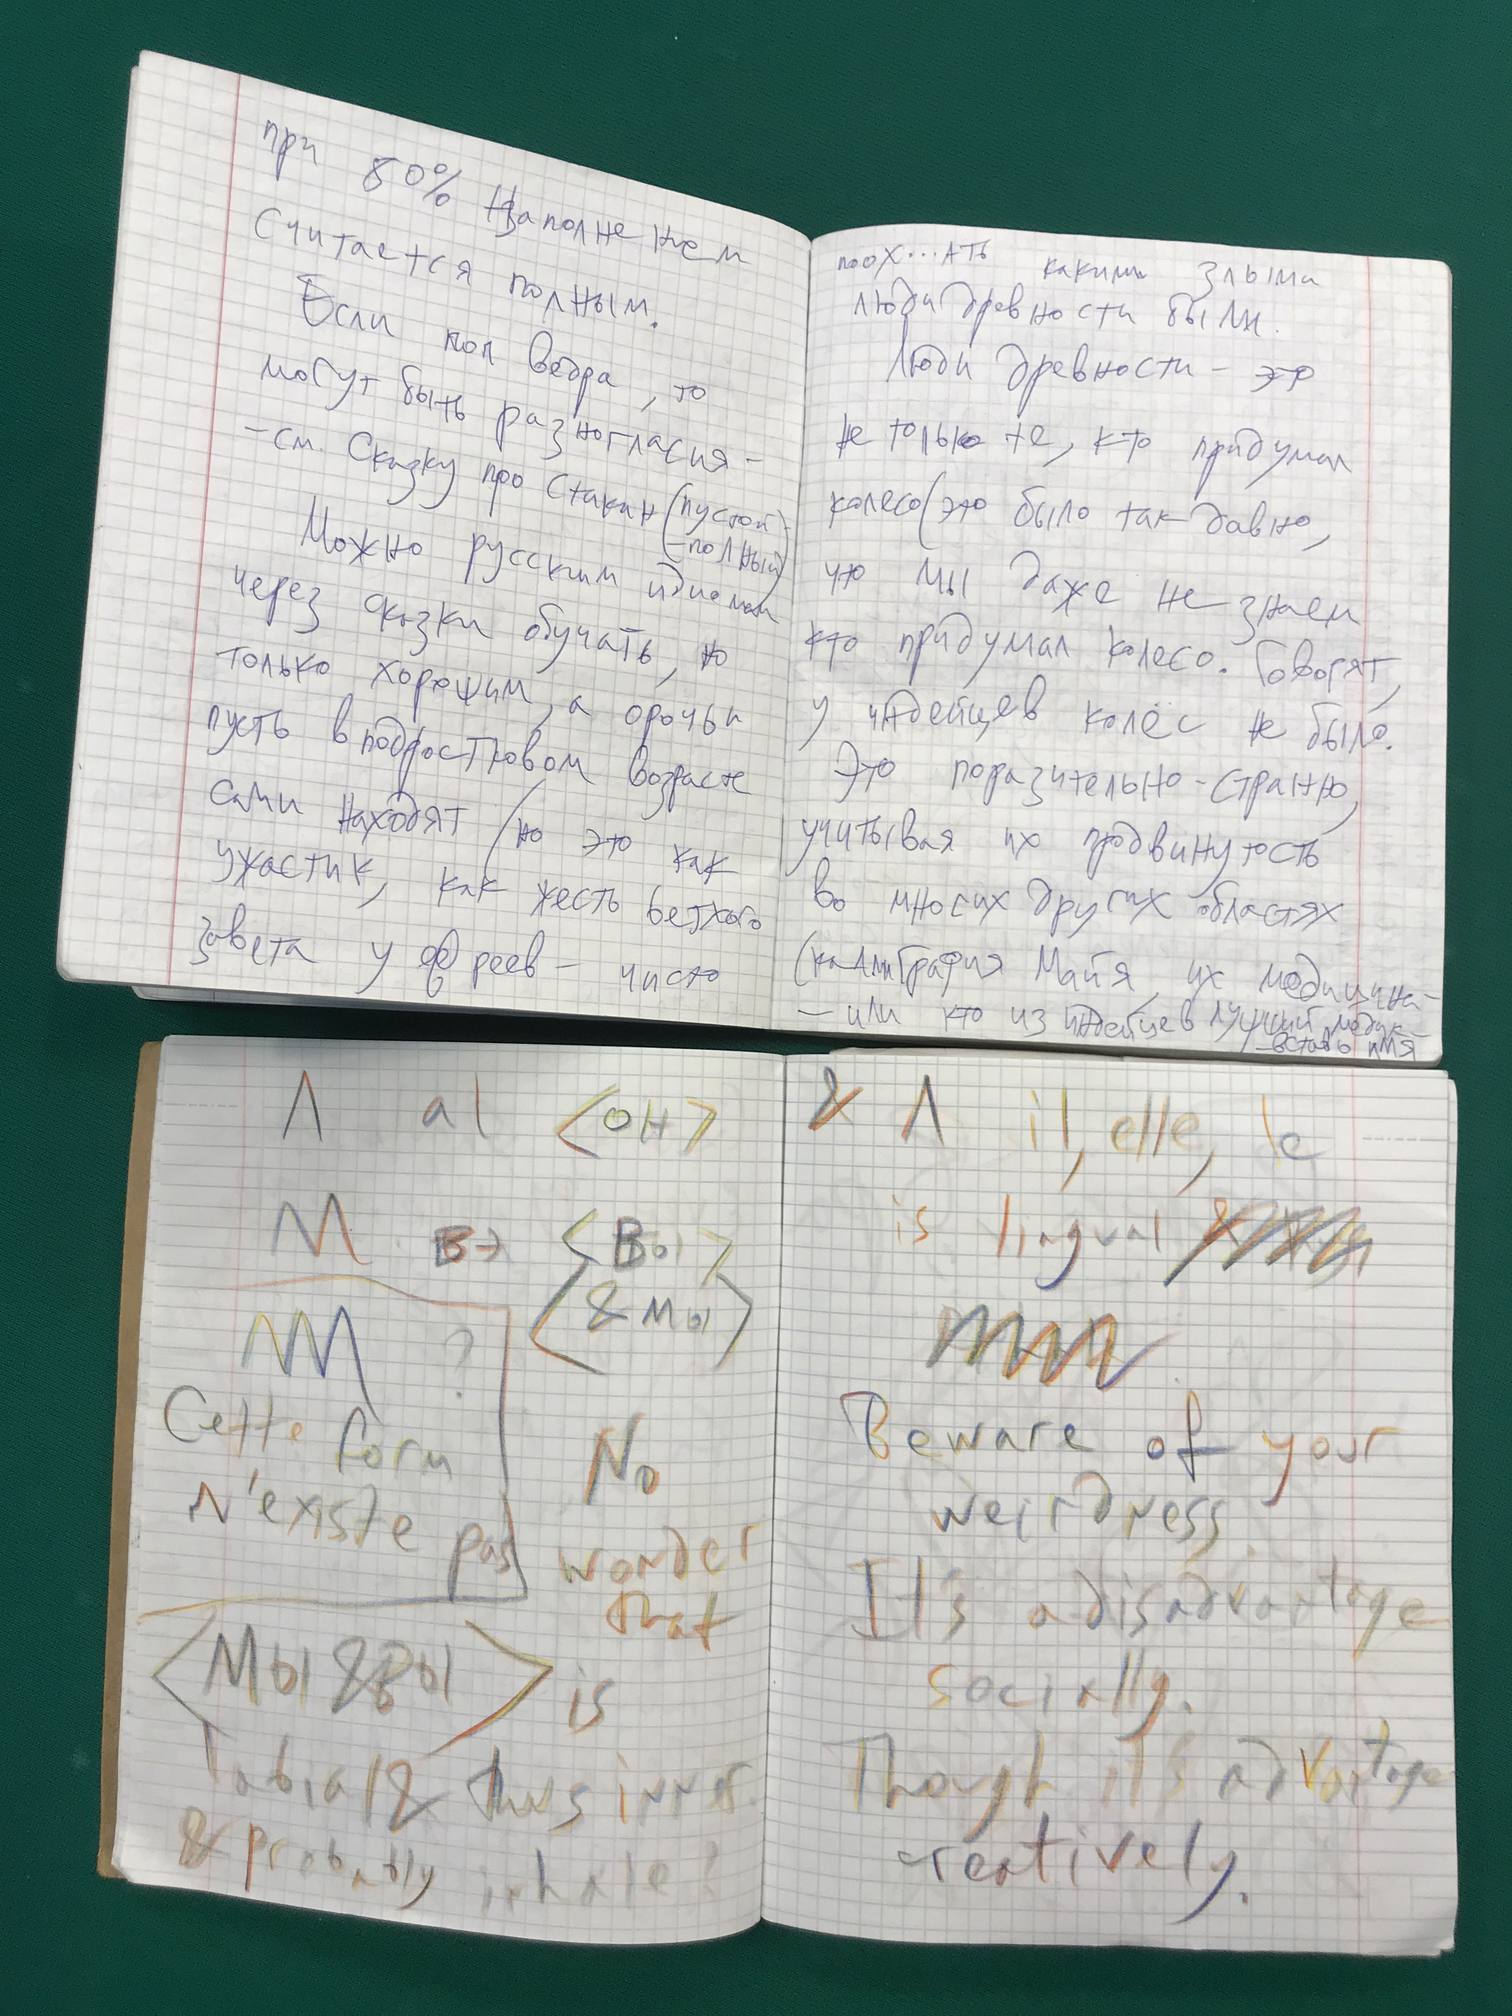 при 80% Наполнением
считается полным.
Если пол ведра, то
могут быть разногласия -
- см. Сказку про стакан (пустой -
- полный)
Можно русским идиомам
через сказки обучать, но
только хорошим, а
пусть в подростковом возрасте
сами находят (но это как
ужастик, как жесть ветхого
завета у евреев - чисто
поох...ать какими злыми
люди древности были.
Люди древности - это
не только те, кто придумал
колесо (это было так давно,
что мы даже не знаем
кто придумал колесо. Говорят,
у индейцев колёс не было.
Это поразительно-странно,
учитывая их продвинутость
во многих других областях
(каллиграфия Майя, их медицина -
- или кто из индейцев лучший медик -
- вставь имя
Λ al <ОН>
M В <ВЫ>
<& МЫ>
?
Cette form
n'existe pas
No
wonder
that
<МЫ & ВЫ> is
labial & thus inner
& probably inhale?
& Λ il, elle, le
is lingual
Beware of your
weirdness.
It's a disadvantage
socially.
Though it's advantage
creatively.